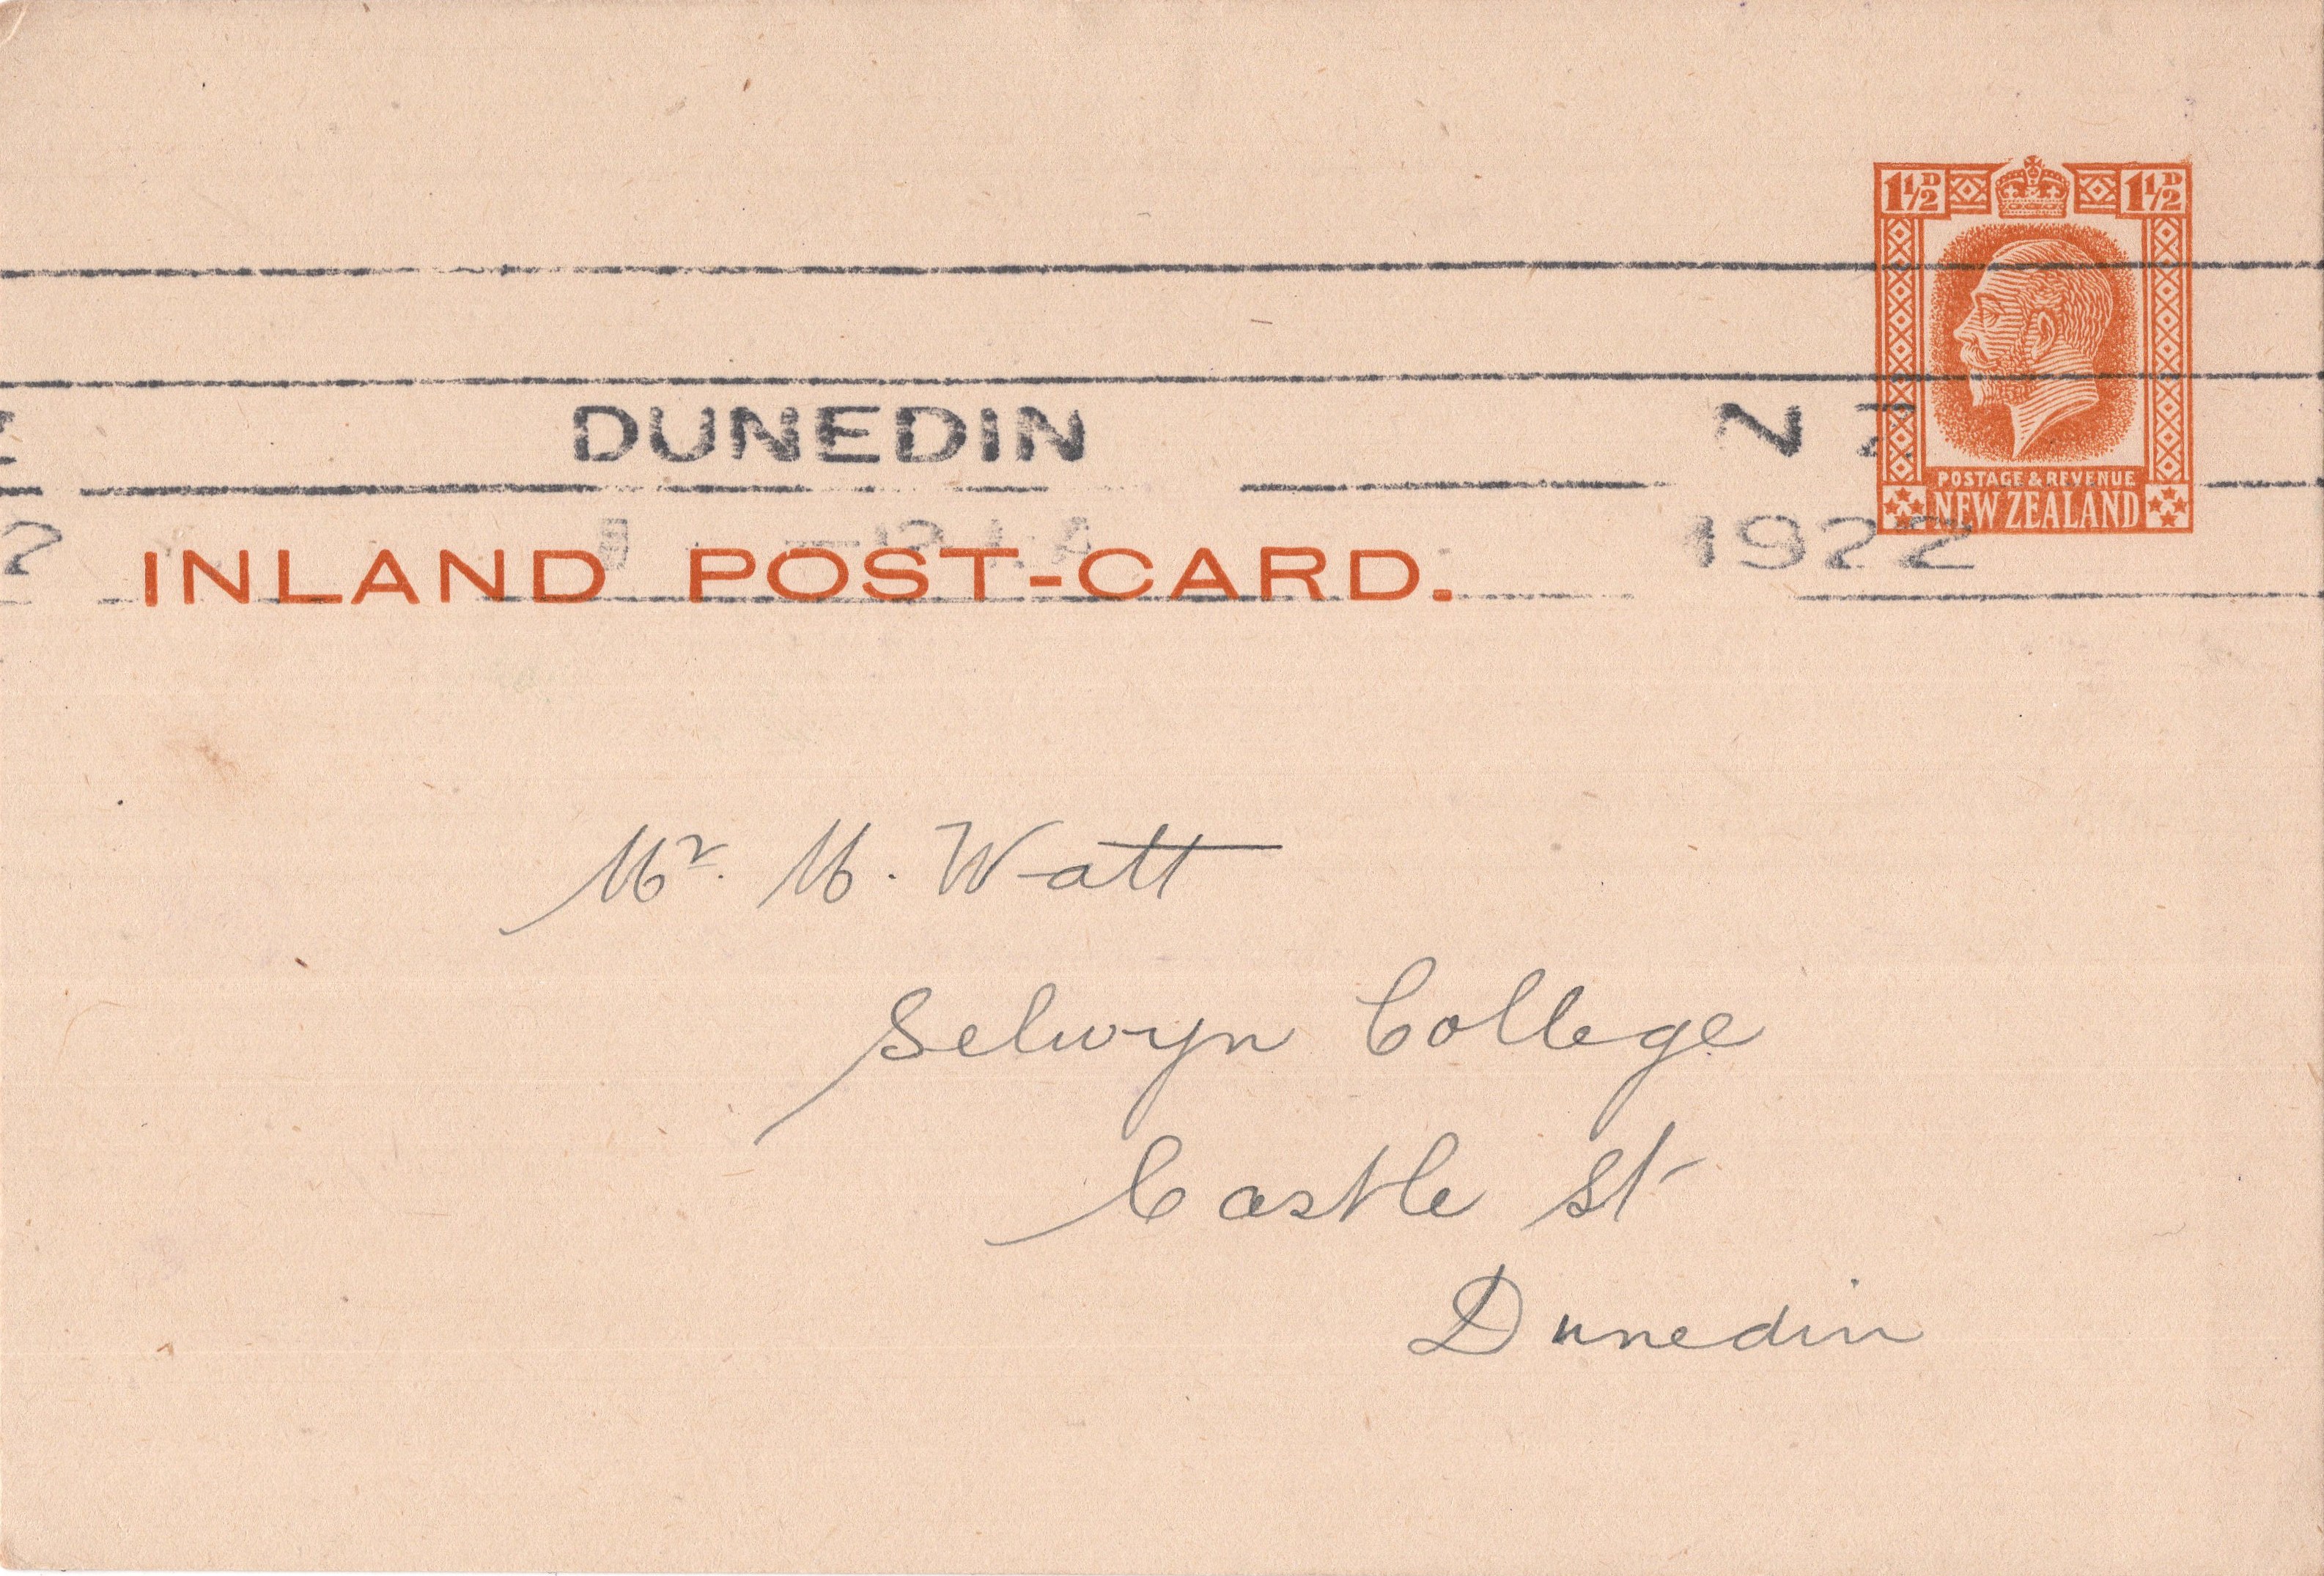 1½D 1½D
DUNEDIN N Z
POSTAGE & REVENUE
NEW ZEALAND
1922
INLAND POST-CARD.
Mr. M. Watt
Selwyn College
Castle St
Dunedin